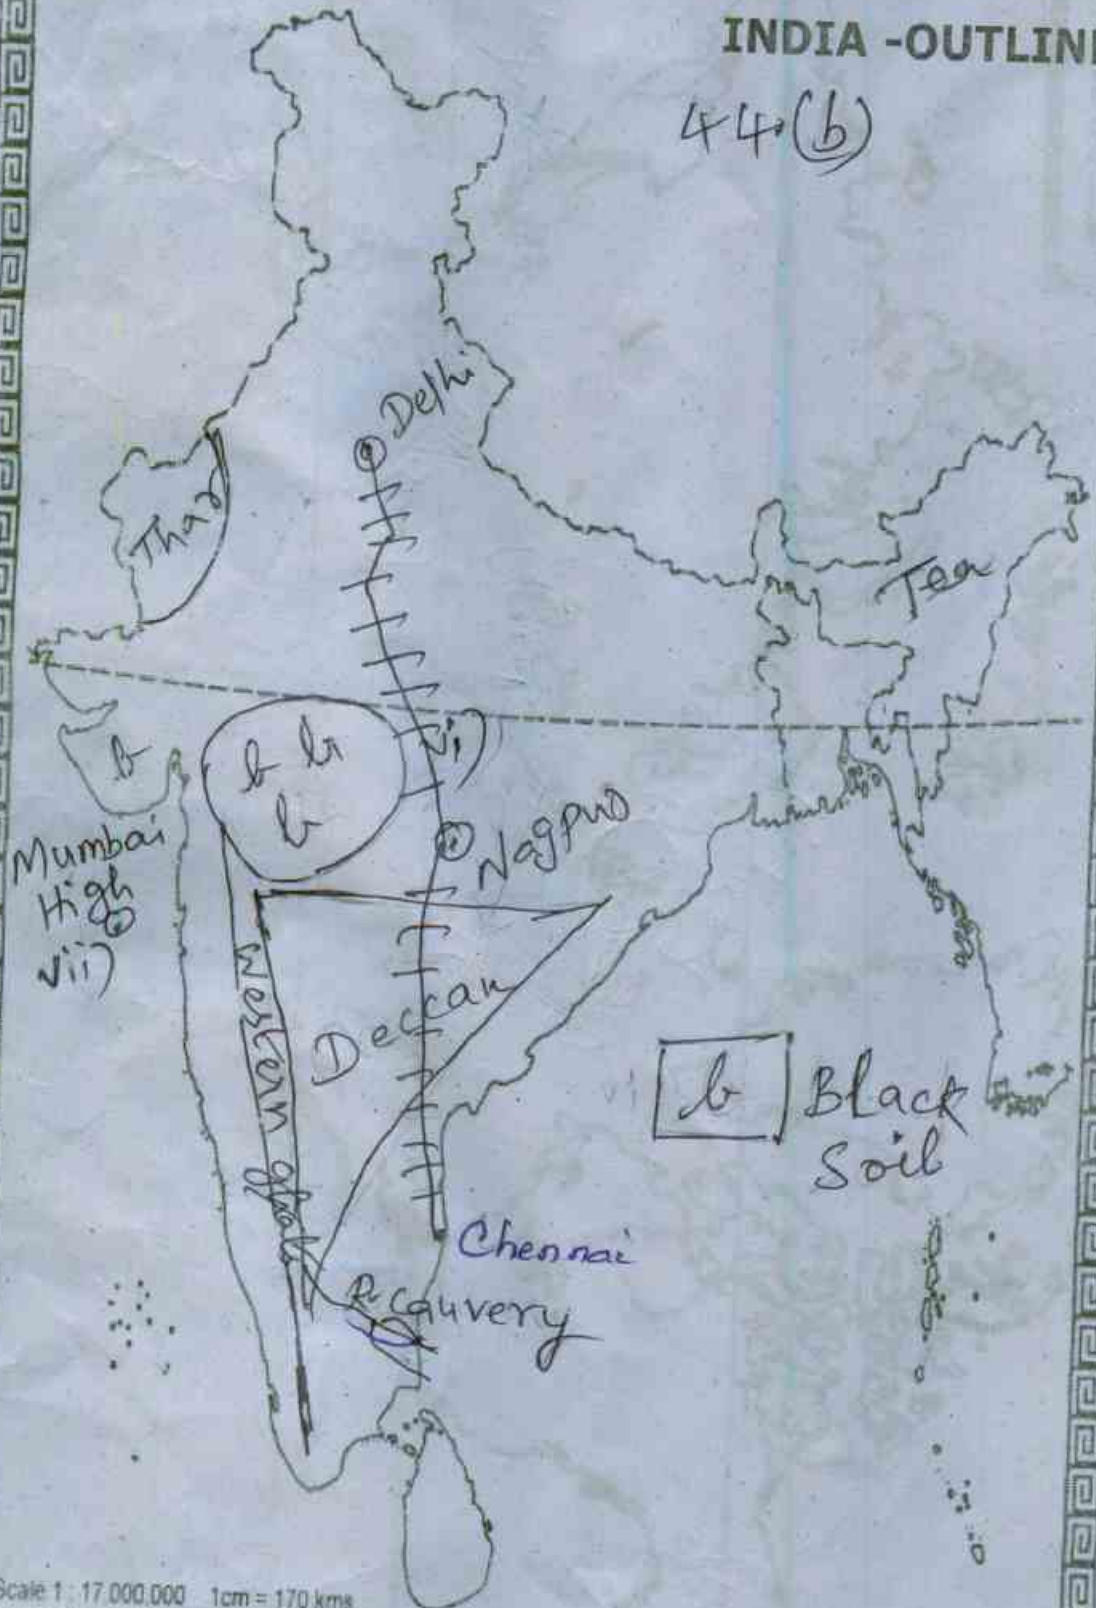 INDIA -OUTLIN
44.(b)
Delhi
Thar
Tea
b
b b
b
vi)
Nagpur
Mumbai
High
vii)
Western ghats
Deccan
b
Black
Soil
Chennai
R. Cauvery
Scale 1 : 17,000,000 1cm = 170 kms